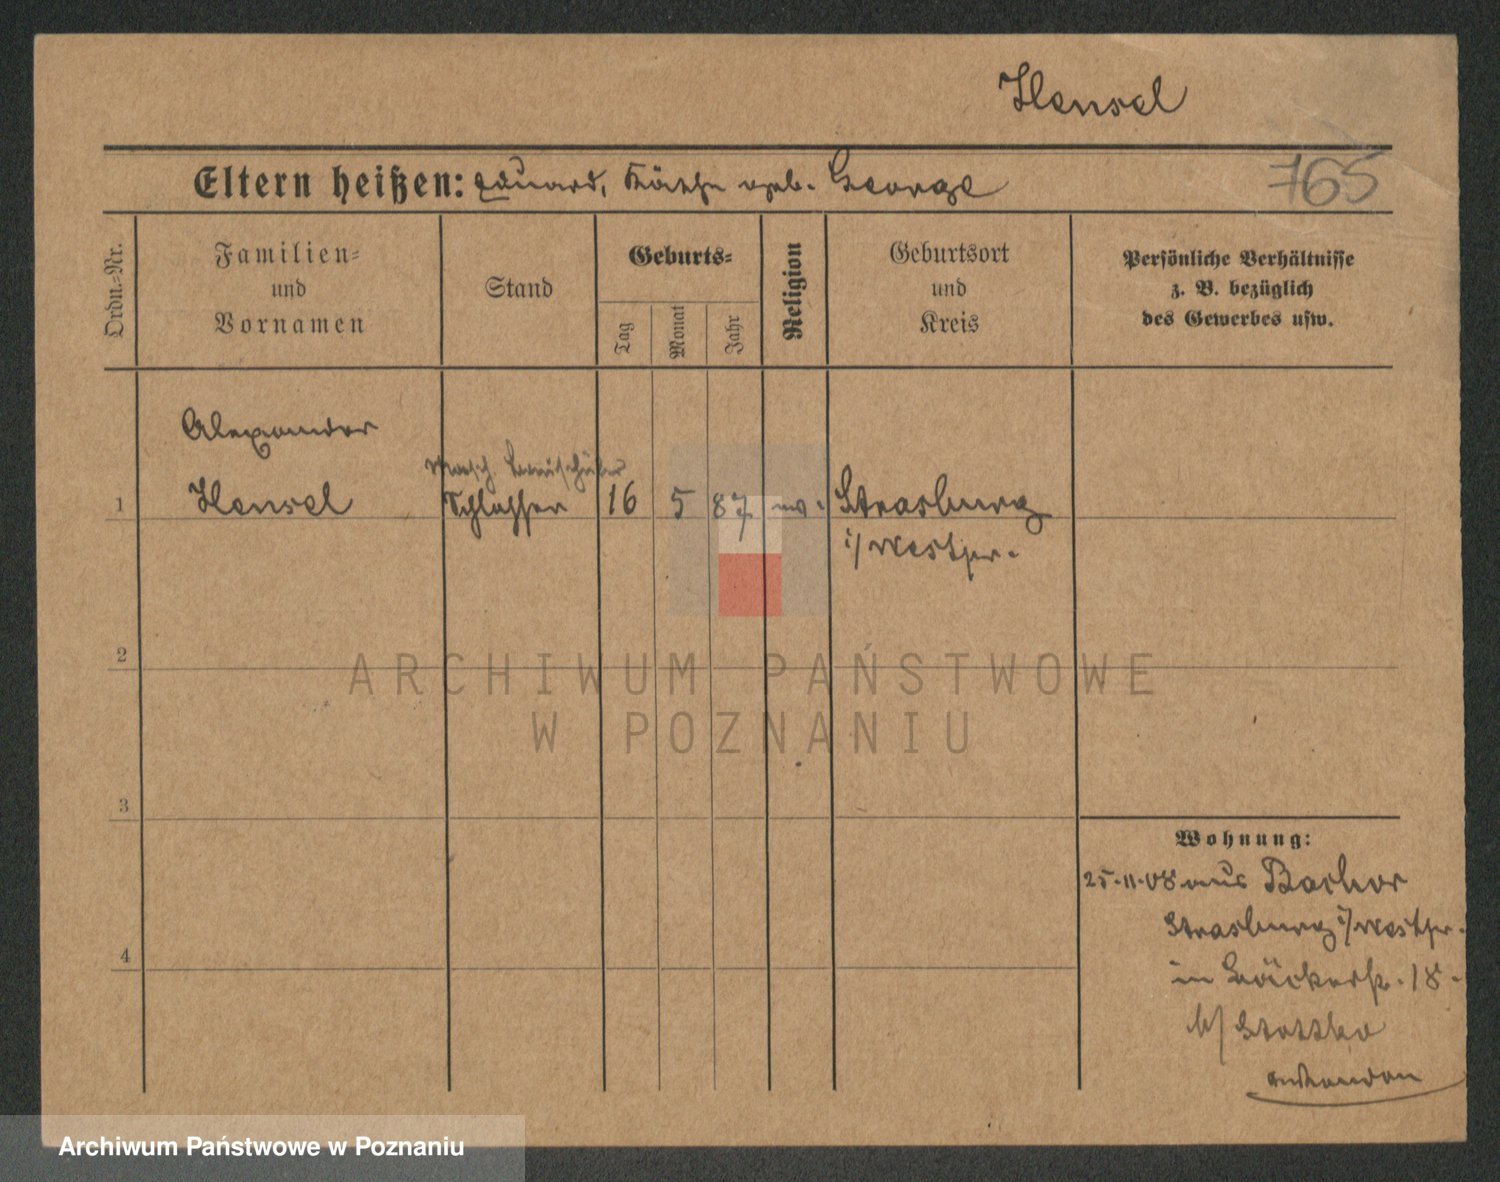 Hensel
765
Eltern heißen: Eduard, Käthe geb. George
Ordn.-Nr.
Familien-
und
Vornamen
Stand
Geburts-
Tag
Monat
Jahr
Religion
Geburtsort
und
Kreis
Persönliche Verhältnisse
z. B. bezüglich
des Gewerbes usw.
Alexander
Masch. Bauschüler
1 Hensel Schlosser 16 5 87 ev. Strasburg
i/Westpr.
2
3
4
Wohnung:
25.11.08 aus Bachor
Strasburg i/Westpr.
in Bäckerstr. 18.
b/
ARCHIWUM PAŃSTWOWE
W POZNANIU
Archiwum Państwowe w Poznaniu